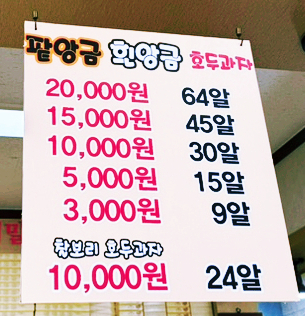 팥앙금 흰앙금 호두과자
20,000원 64알
15,000원 45알
10,000원 30알
5,000원 15알
3,000원 9알
찰보리 호두과자
10,000원 24알